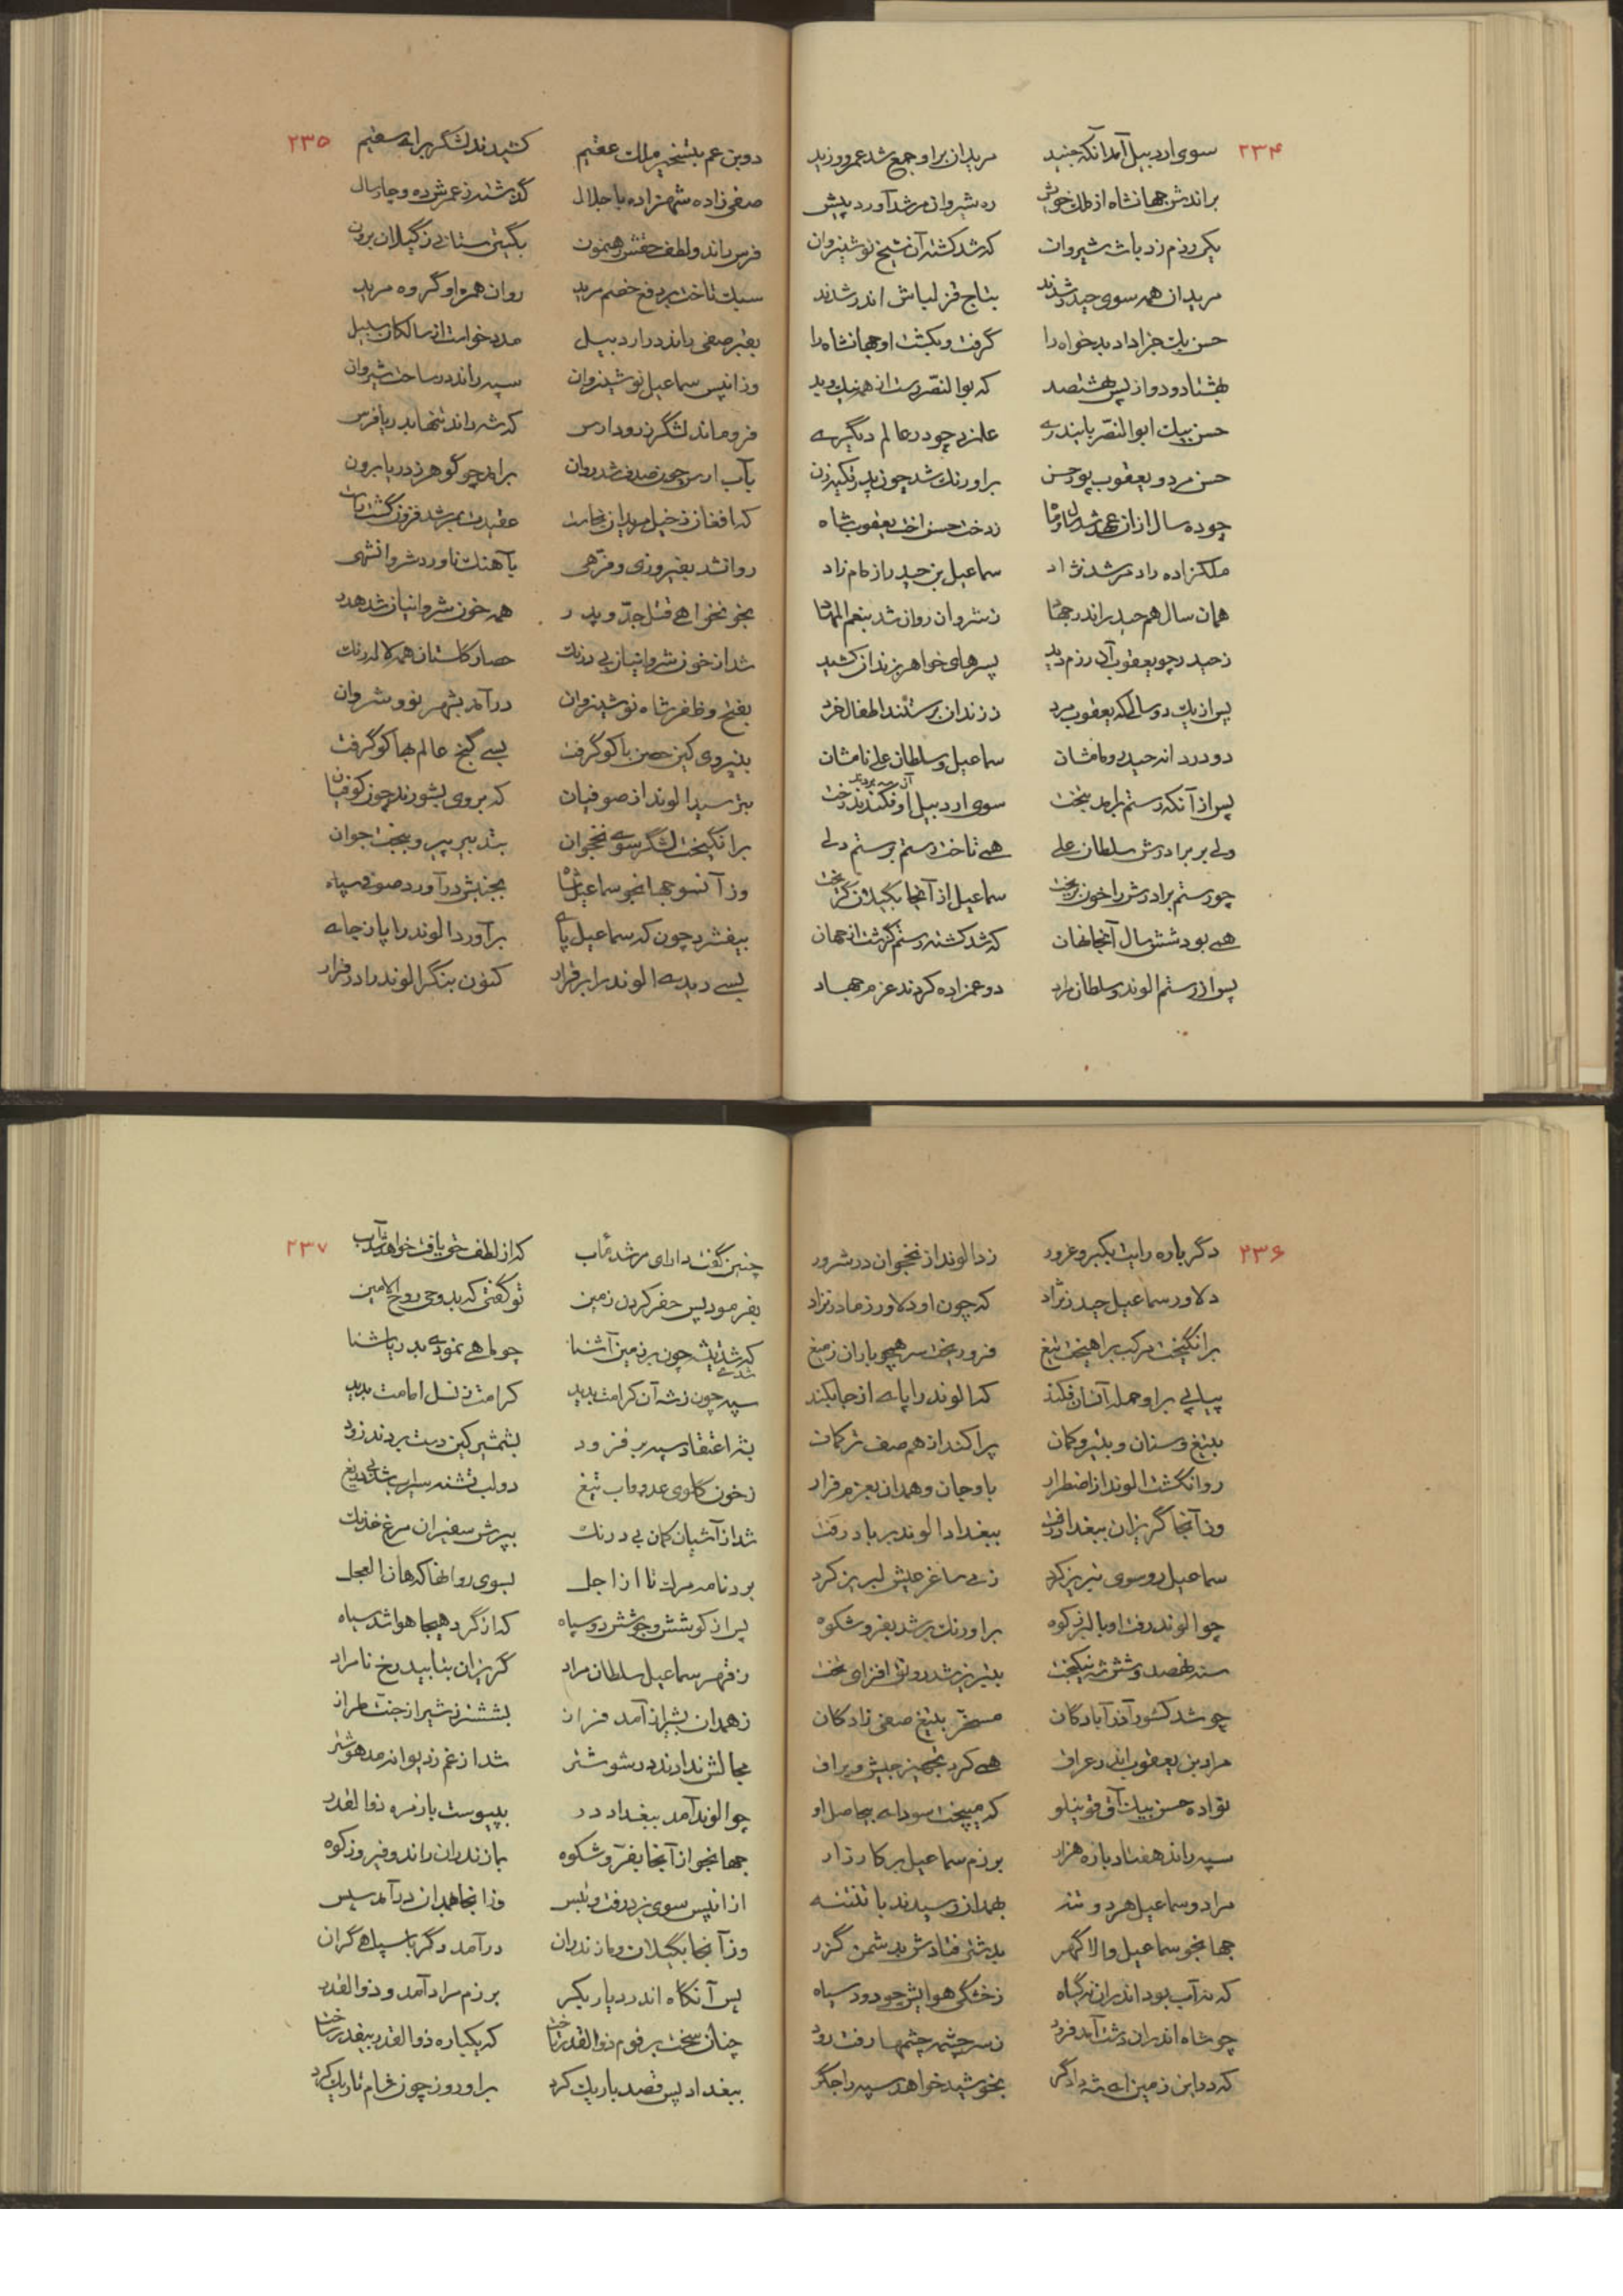 ۲۳۴
سوی اردبیل آمد آنکه جنید مریدان براو جمع شد عمرو و زید
براندش جهانشاه از ملک خویش ره شیروان مرشد آورد پیش
یکی رزم زد باشه شیروان که شد کشته آن شیخ نوشیروان
مریدان همه سوی حیدر شدند بتاج قزلباش اندر شدند
حسن بیک جزا داد بدخواه را گرفت و بکشت او جهانشاه را
بهشتاد و دو از پس هشتصد که بوالنصر رست از همه نیک و بد
حسن بیک ابوالنصر بایندری علم زد چو در عالم دیگری
حسن مرد و یعقوب پور حسن براورنک شد چون پدر تکیه زن
چو ده سال از آن عهد شد زدخت حسن اخت یعقوب شاه
ملکزاده راد مرشد نژاد سماعیل بن حیدر از مام زاد
همان سال هم حیدر اندر جهان زشروان روان شد
زحیدر چو یعقوب آن رزم دید پسرهای خواهر بزندان کشید
پس از یک دو سالی که یعقوب مرد ززندان برستند اطفال خرد
دو در دانه حیدری نامشان سماعیل و سلطان علی نامشان
پس از آنکه رستم برآمد بتخت سوی اردبیل او فکندند رخت
ولی بر برادرش سلطان علی همی تاخت رستم برستم دلی
چو رستم برادرش را خون بریخت سماعیل از آنجا بگیلان گریخت
همی بود شش سال آنجا نهان که شد کشته رستم گرفت از جهان
پس از رستم الوند و سلطان مراد دو عمزاده کردند عزم جهاد
۲۳۵
دو بن عم بتسخیر ملک عقیم کشیدند لشگر برای سقیم
صفی زاده شهزاده با جلال گذشته ز عمرش ده و چار سال
فرس راند و لطف حقش رهنمون بگیتی ستانی ز گیلان برون
سبک تاخت بر دفع خصم مرید روان همره او گروه مرید
بقبر صفی راند در اردبیل مدد خواست از سالکان سبیل
وزانپس سماعیل نوشیروان سپه راند در ساحت شیروان
فرو ماند لشگر ز رود ارس که شه راند تنها بدریا فرس
بآب ارس چون صدف شد روان برآمد چو گوهر ز دریا برون
که افغان ز خیل مریدان بخاست عقیدت بمرشد فزون گشت راست
روانشد بفیروزی و فرّهی بآهنگ ناورد شروانشهی
بخونخواهی قتل جدّ و پدر همه خون شروانیان شد هدر
شد از خون شروانیان بی درنگ حصار گلستان همه لاله رنگ
بفتح و ظفر شاه نوشیروان درآمد بشهر نو و شروان
بنیروی کین حصن باکو گرفت بسی گنج عالم بها کو گرفت
بترسید الوند از صوفیان که بروی بشورند چون کوفیان
برانگیخت لشگر سوی نخجوان بتدبیر پیر و ببخت جوان
وز آنسو جهانجو سماعیل شاه بجنبش درآورد صوفی سپاه
بیفشرد چون که سماعیل پای برآورد الوند را پا ز جای
بسی دیدی الوند را بر قرار کنون بنگر الوند را در فرار
۲۳۶
دگر باره رایت بکبر و غرور زد الوند از نخجوان در شرور
دلاور سماعیل حیدر نژاد که چون او دلاور زمادر نزاد
برانگیخت مرکب براهیخت تیغ فرو ریخت سر همچو باران ز میغ
پیاپی براو حمله آنسان فکند که الوند را پای از جا بکند
بتیغ و سنان و بتیر و کمان پراکند از هم صف ترکمان
روانگشت الوند از اضطرار باوجان و همدان بعزم فرار
وز آنجا گریزان ببغداد رفت ببغداد الوند بر باد رفت
سماعیل رو سوی تبریز کرد ز می ساغر عیش لبریز کرد
چو الوند رفت او بالبرز کوه براورنک بر شد بفر و شکوه
سنه نهصد و شش شه نیکبخت بتبریز شد رونق افزای تخت
چو شد کشور آذرآبادگان مسخر بتیغ صفی زادگان
مراد بن یعقوب اندر عراق همی کرد تجهیز جیش و یراق
نواده حسن بیک آق قوینلو که میپخت سودای بیحاصل او
سپه راند هفتاد باره هزار برزم سماعیل بر کارزار
مراد و سماعیل هر دو تنه بهمدان رسیدند با تنتنه
جهانجو سماعیل والا گهر بدشتی فتادش بدشمن گذر
که نه آب بود اندر آن نه گیاه ز خشکی هوایش چو دود سیاه
چو شاه اندران دشت آمد فرود ز سرچشمه چشمها رفت رود
که در این زمین ای شه دادگر بخوشید خواهد سپه را جگر
۲۳۷
چنین گفت دارای مرشد مآب که از لطف حق یافت خواهند آب
بفرمود پس حفر کردن زمین تو گفتی که بد وحی روح الامین
که شد تیشه چون بر زمین آشنا شدی چو ماهی نمودی بدریا شنا
سپه چون ز شه آن کرامت بدید کرامت ز نسل امامت بدید
بشه اعتقاد سپه بر فزود بشمشیر کین دست بردند زود
ز خون گلوی عدو و آب تیغ دو لب تشنه سیراب شد بی دریغ
شد از آشیان کمان بی درنک بپرش سفیران مرغ خدنک
برد نامه مرک تا از اجل بسوی روانها که هان العجل
پس از کوشش و جوشش دو سپاه که از گرد هیجا هوا شد سیاه
ز قهر سماعیل سلطان مراد گریزان بتابید رخ نامراد
ز همدان بشیراز آمد فراز بششتر ز شیراز جنت طراز
مجالش ندادند در شوشتر شد از غم ز دیوانه مدهوشتر
چو الوند آمد ببغداد در بپیوست با زمره ذوالقدر
جهانجو از آنجا بفر و شکوه بازندران راند و فیروزکوه
از انپس سوی یزد رفت و بپس وز انجا بهمدان درآمد سپس
وز آنجا بگیلان و مازندران درآمد دگر با سپاهی گران
پس آنگاه اندر دیار بکر برزم مراد آمد و ذوالقدر
چنان سخت بر قوم ذوالقدر تاخت که یکباره ذوالقدر بیقدر ساخت
ببغداد پس قصد باریک کرد براو روز چون شام تاریک کرد